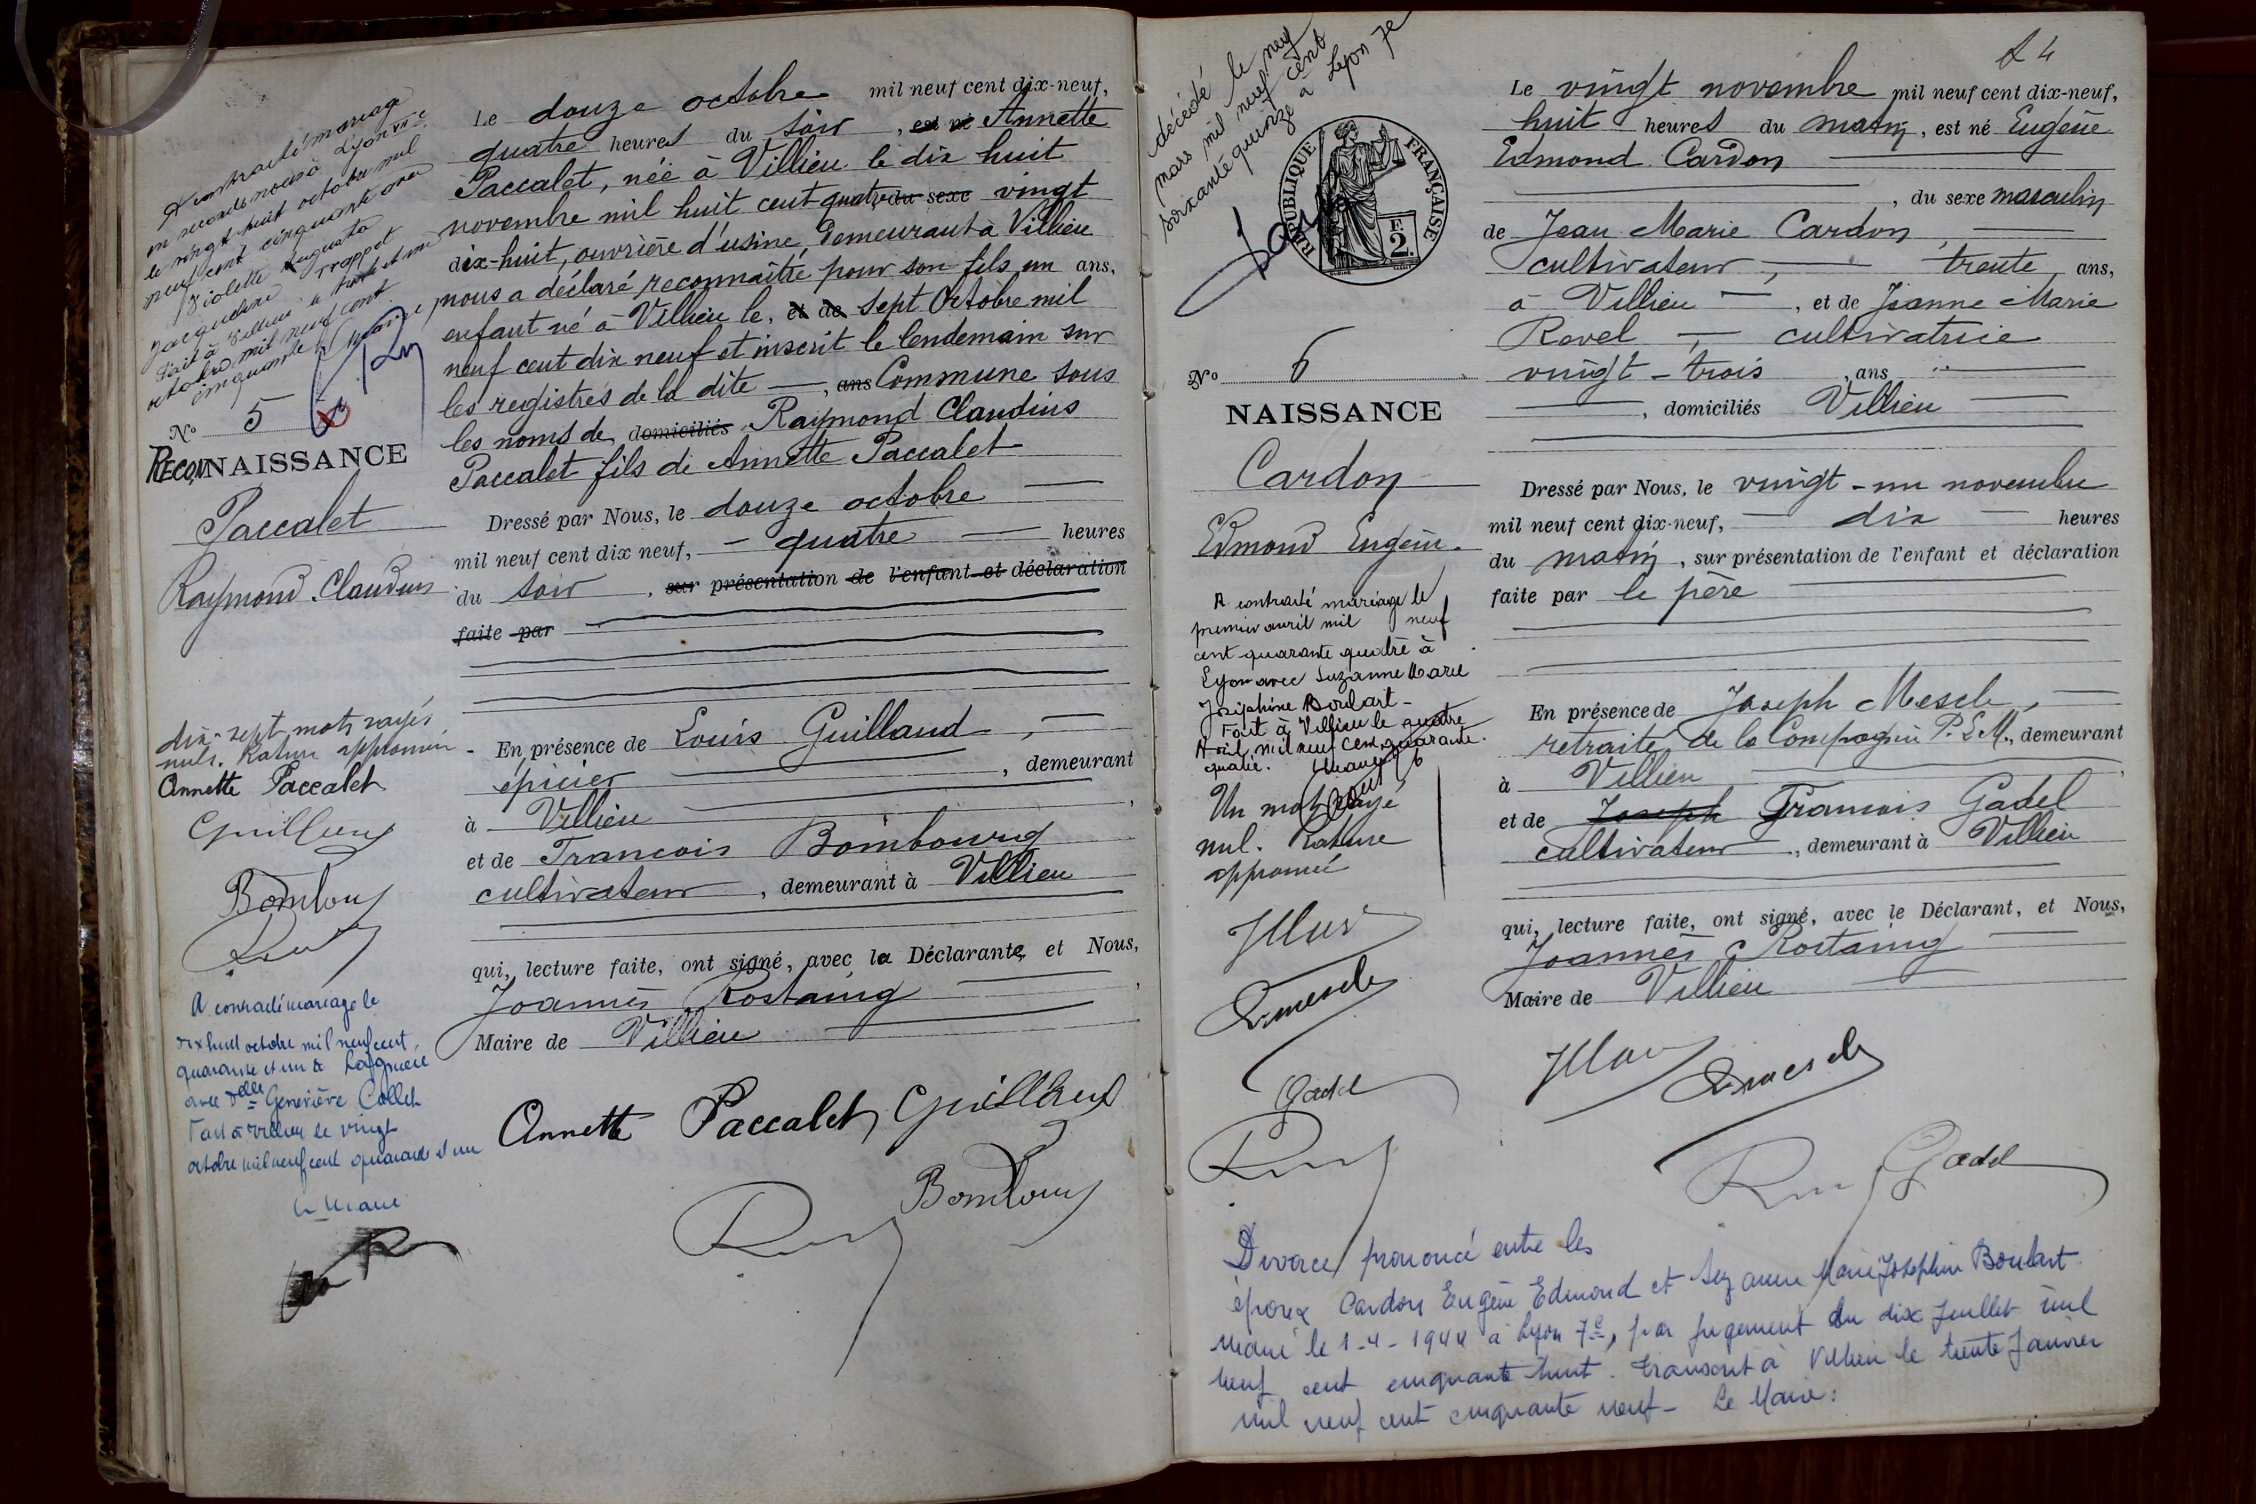 A contracté mariage
en secondes noces à Lyon VIIe
le vingt huit octobre mil
neuf cent cinquante avec
Violette Augusta
Jacqueline Trappet
Fait à Villieu le trente et un
octobre mil neuf cent
cinquante
No 5
RECONNAISSANCE
Paccalet
Raymond Claudius
dix-sept mots rayés
nuls. Rature approuvée
Annette Paccalet
A contracté mariage le
dix huit octobre mil neuf cent
quarante et un à Lagnieu
avec Delle Geneviève Collet
Fait à Villieu le vingt
octobre mil neuf cent quarante et un
Le Maire
Le douze octobre mil neuf cent dix-neuf,
quatre heures du soir, est né Annette
Paccalet, née à Villieu le dix huit
novembre mil huit cent quatre du sexe vingt
dix-huit, ouvrière d'usine, demeurant à Villieu
nous a déclaré reconnaître pour son fils un ans,
enfant né à Villieu le, et de sept Octobre mil
neuf cent dix neuf et inscrit le lendemain sur
les registres de la dite —, ans Commune sous
les noms de domiciliés Raymond Claudius
Paccalet fils de Annette Paccalet
Dressé par Nous, le douze octobre
mil neuf cent dix neuf, — quatre — heures
du soir, sur présentation de l'enfant et déclaration
faite par
En présence de Louis Guillaud, —
épicier, demeurant
à Villieu
et de Francois Bombourg
cultivateur, demeurant à Villieu
qui, lecture faite, ont signé, avec la Déclarante, et Nous,
Joannès Rostaing
Maire de Villieu
Annette Paccalet
décédé le neuf
mars mil neuf cent
soixante quinze à Lyon 7e
RÉPUBLIQUE FRANÇAISE
F.
2.
No 6
NAISSANCE
Cardon
Edmond Eugène.
A contracté mariage le
premier avril mil neuf
cent quarante quatre à
Lyon avec Suzanne Marie
Joséphine Boulart -
Fait à Villieu le quatre
Avril mil neuf cent quarante
quatre.
Un mot rayé
nul. Rature
approuvée
Gadel
24
Le vingt novembre mil neuf cent dix-neuf,
huit heures du matin, est né Eugène
Edmond Cardon
, du sexe masculin
de Jean Marie Cardon, —
cultivateur, — trente ans,
à Villieu —, et de Jeanne Marie
Revel —, cultivatrice
vingt-trois, ans
, domiciliés Villieu
Dressé par Nous, le vingt-un novembre
mil neuf cent dix-neuf, — dix — heures
du matin, sur présentation de l'enfant et déclaration
faite par le père
En présence de Joseph Mescle, —
retraité de la Compagnie P.L.M., demeurant
à Villieu
et de Joseph Francois Gadel
cultivateur, demeurant à Villieu
qui, lecture faite, ont signé, avec le Déclarant, et Nous,
Joannès Rostaing
Maire de Villieu
Gadel
Divorce prononcé entre les
époux Cardon Eugène Edmond et Suzanne Marie Joséphine Boulart
marié le 1-4-1944 à Lyon 7e, par jugement du dix Juillet mil
neuf cent cinquante huit. Transcrit à Villieu le trente Janvier
mil neuf cent cinquante neuf - Le Maire :